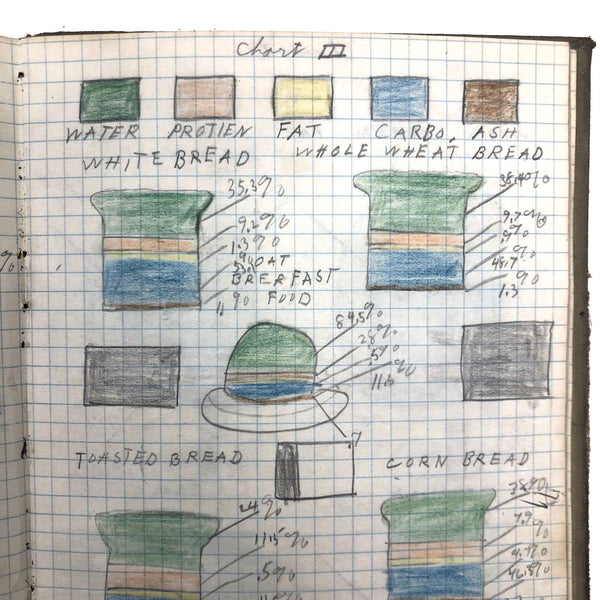 Chart III
WATER PROTIEN FAT CARBO. ASH
WHITE BREAD
WHOLE WHEAT BREAD
35.3%
9.2%
1.3%
1.1%
38.4%
9.7%
.9%
49.7%
1.3%
OAT
BREAFAST
FOOD
84.5%
2.8%
.5%
11.5%
.7
TOASTED BREAD
24%
11.5%
.5%
CORN BREAD
38.9%
7.9%
4.7%
46.3%